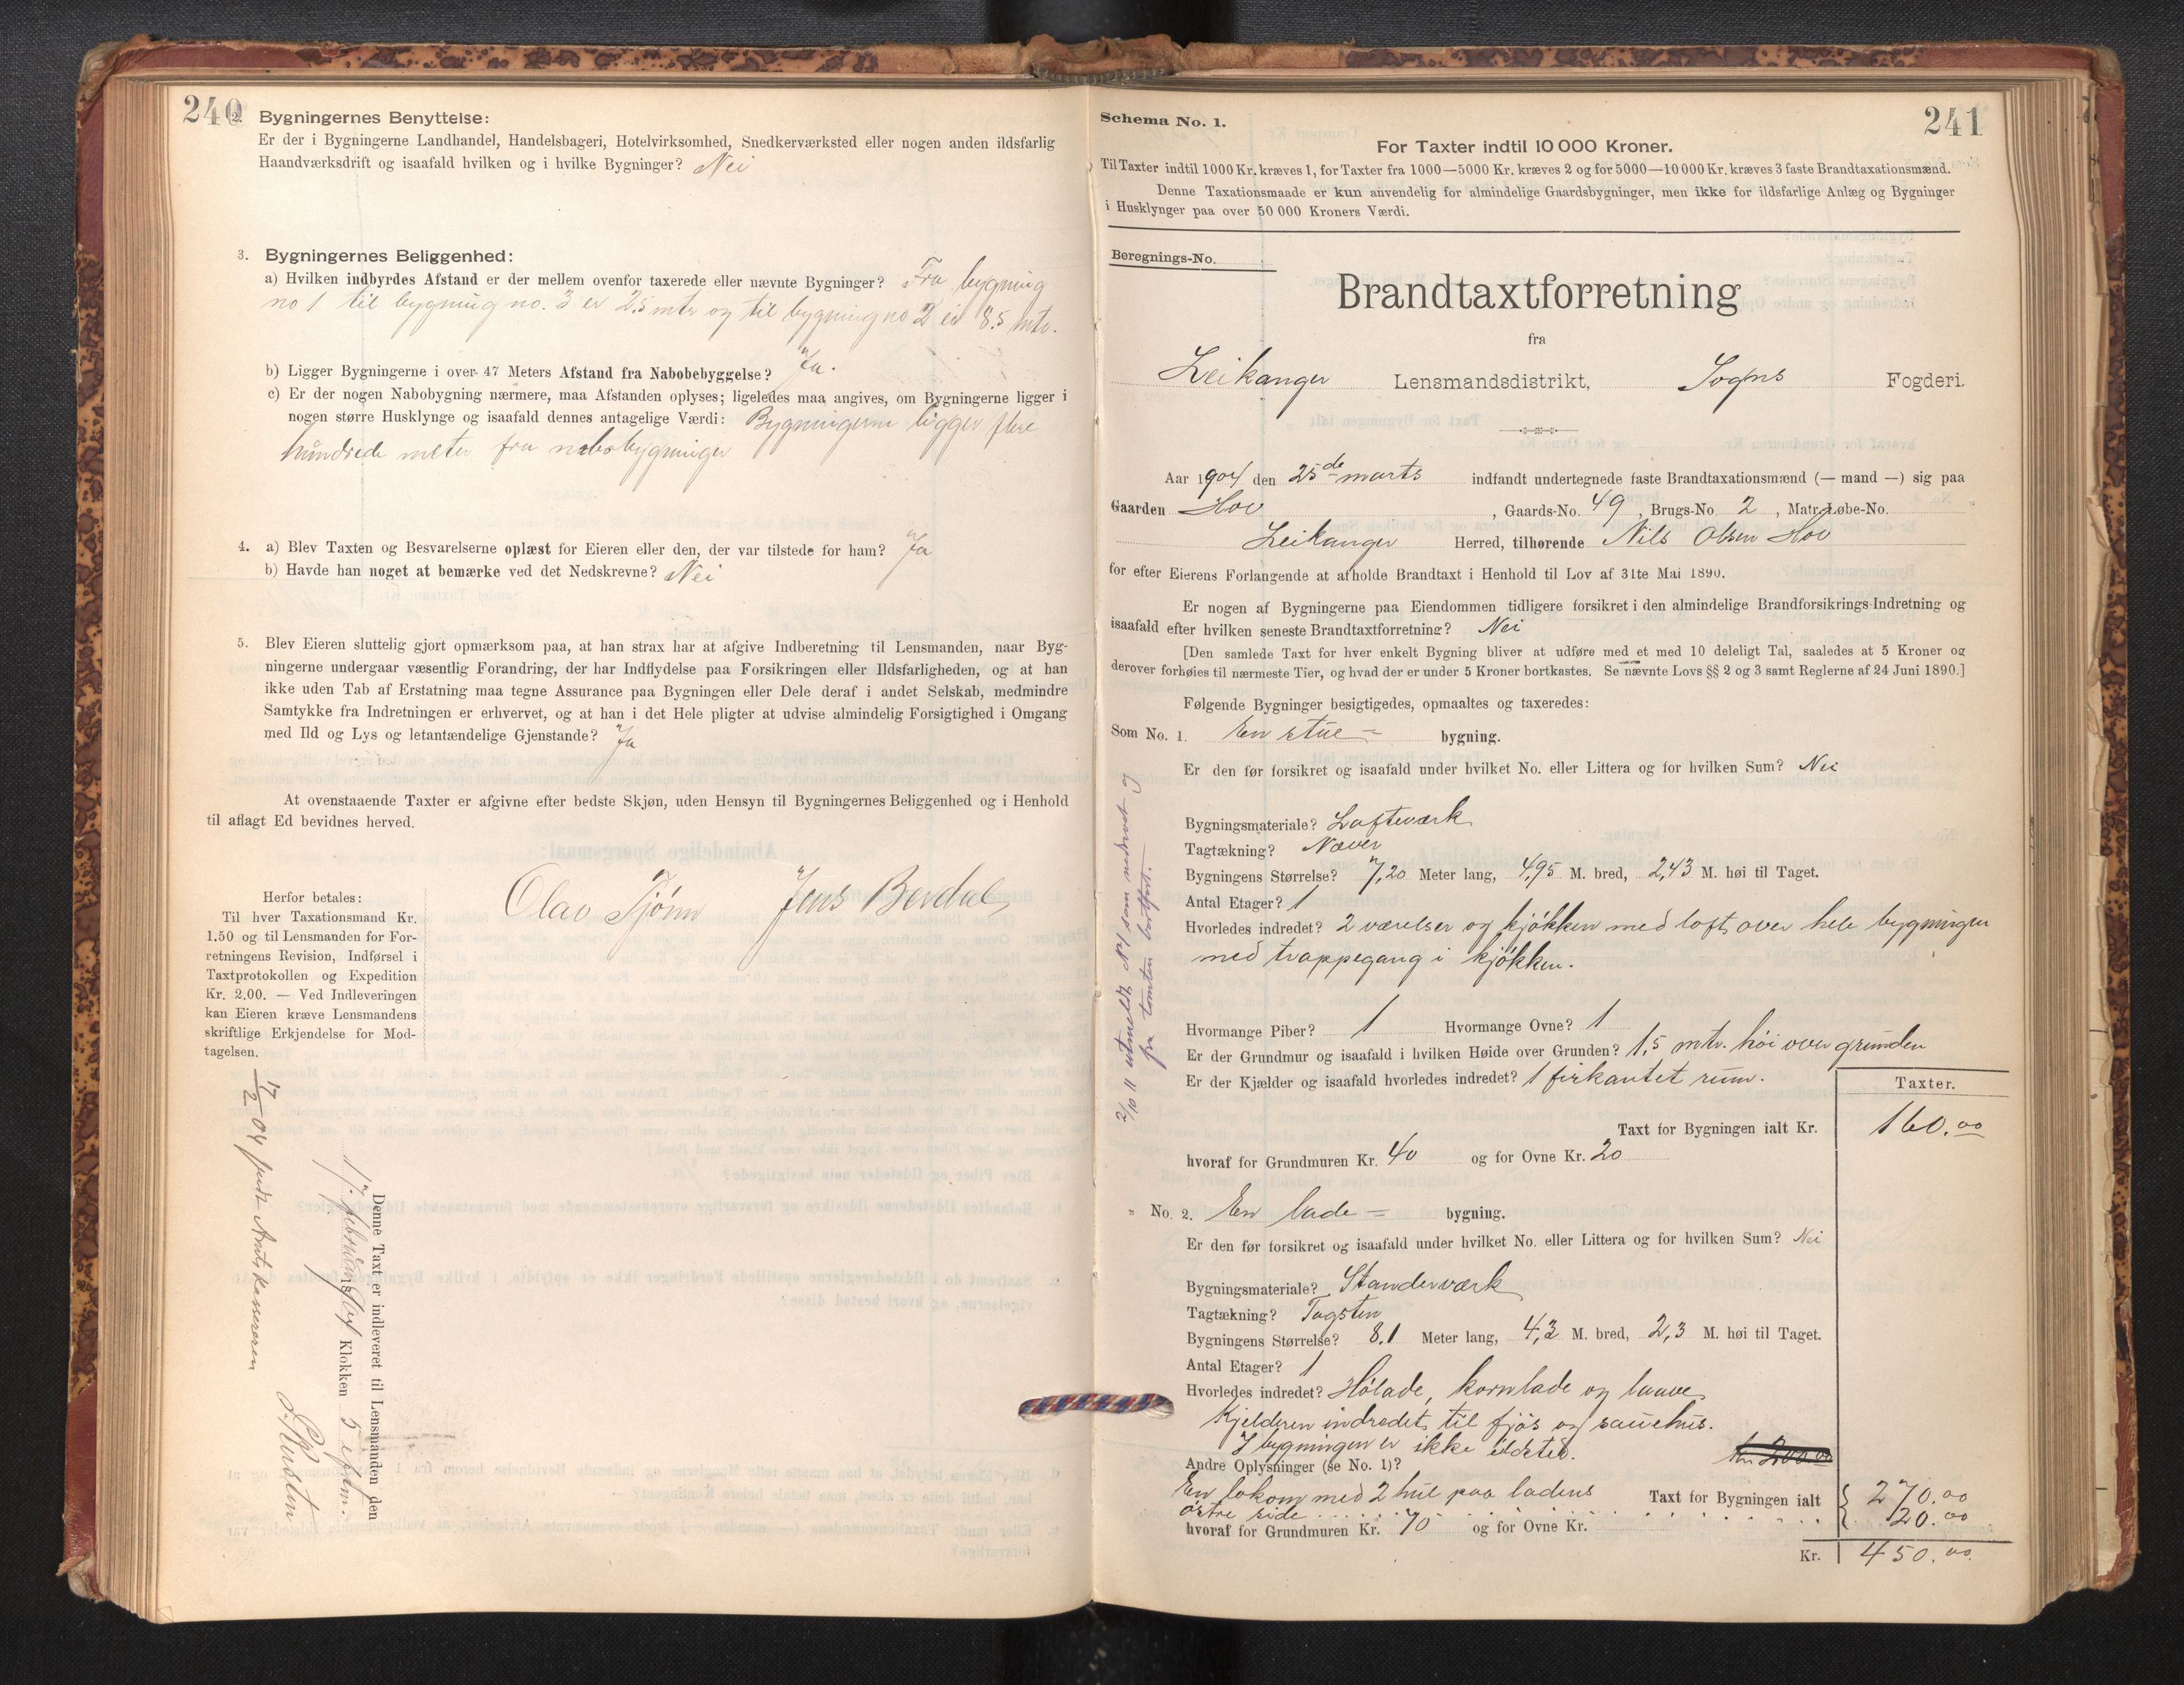 240
2. Bygningernes Benyttelse:
Er der i Bygningerne Landhandel, Handelsbageri, Hotelvirksomhed, Snedkerværksted eller nogen anden ildsfarlig
Haandværksdrift og isaafald hvilken og i hvilke Bygninger? Nei
3. Bygningernes Beliggenhed:
a) Hvilken indbyrdes Afstand er der mellem ovenfor taxerede eller nævnte Bygninger? Fra bygning
no 1 til bygning no. 3 er 25 mtr og til bygning no 2 er 8.5 mtr.
b) Ligger Bygningerne i over 47 Meters Afstand fra Nabobebyggelse? Ja.
c) Er der nogen Nabobygning nærmere, maa Afstanden oplyses; ligeledes maa angives, om Bygningerne ligger i
nogen større Husklynge og isaafald dennes antagelige Værdi: Bygningerne ligger flere
hundrede meter fra nabobygninger
4. a) Blev Taxten og Besvarelserne oplæst for Eieren eller den, der var tilstede for ham? Ja
b) Havde han noget at bemærke ved det Nedskrevne? Nei
5. Blev Eieren sluttelig gjort opmærksom paa, at han strax har at afgive Indberetning til Lensmanden, naar Byg-
ningerne undergaar væsentlig Forandring, der har Indflydelse paa Forsikringen eller Ildsfarligheden, og at han
ikke uden Tab af Erstatning maa tegne Assurance paa Bygningen eller Dele deraf i andet Selskab, medmindre
Samtykke fra Indretningen er erhvervet, og at han i det Hele pligter at udvise almindelig Forsigtighed i Omgang
med Ild og Lys og letantændelige Gjenstande? Ja
At ovenstaaende Taxter er afgivne efter bedste Skjøn, uden Hensyn til Bygningernes Beliggenhed og i Henhold
til aflagt Ed bevidnes herved.
Olav Tjønn Jens Berdal
Herfor betales:
Til hver Taxationsmand Kr.
1.50 og til Lensmanden for For-
retningens Revision, Indførsel i
Taxtprotokollen og Expedition
Kr. 2.00. — Ved Indleveringen
kan Eieren kræve Lensmandens
skriftlige Erkjendelse for Mod-
tagelsen.
Denne Taxt er indleveret til Lensmanden den
17. februar Klokken 5 eftm.
17/2 04 sendt Amtskassereren
241
Schema No. 1.
For Taxter indtil 10 000 Kroner.
Til Taxter indtil 1000 Kr. kræves 1, for Taxter fra 1000—5000 Kr. kræves 2 og for 5000—10 000 Kr. kræves 3 faste Brandtaxationsmænd.
Denne Taxationsmaade er kun anvendelig for almindelige Gaardsbygninger, men ikke for ildsfarlige Anlæg og Bygninger
i Husklynger paa over 50 000 Kroners Værdi.
Beregnings-No.
Brandtaxtforretning
fra
Leikanger Lensmandsdistrikt, Sogns Fogderi.
Aar 1904 den 25de marts indfandt undertegnede faste Brandtaxationsmænd (— mand —) sig paa
Gaarden Hov, Gaards-No. 49, Brugs-No. 2, Matr. Løbe-No.
Leikanger Herred, tilhørende Nils Olsen Hov
for efter Eierens Forlangende at afholde Brandtaxt i Henhold til Lov af 31te Mai 1890.
Er nogen af Bygningerne paa Eiendommen tidligere forsikret i den almindelige Brandforsikrings-Indretning og
isaafald efter hvilken seneste Brandtaxtforretning? Nei
[Den samlede Taxt for hver enkelt Bygning bliver at udføre med et med 10 deleligt Tal, saaledes at 5 Kroner og
derover forhøies til nærmeste Tier, og hvad der er under 5 Kroner bortkastes. Se nævnte Lovs §§ 2 og 3 samt Reglerne af 24 Juni 1890.]
Følgende Bygninger besigtigedes, opmaaltes og taxeredes:
Som No. 1. En stue - bygning.
Er den før forsikret og isaafald under hvilket No. eller Littera og for hvilken Sum? Nei
Bygningsmateriale? Lofteværk
Tagtækning? Næver
Bygningens Størrelse? 7,20 Meter lang, 4,95 M. bred, 2,43 M. høi til Taget.
Antal Etager? 1
Hvorledes indredet? 2 værelser og kjøkken med loft over hele bygningen
med trappegang i kjøkken.
Hvormange Piber? 1 Hvormange Ovne? 1
Er der Grundmur og isaafald i hvilken Høide over Grunden? 1,5 mtr. høi over grunden
Er der Kjælder og isaafald hvorledes indredet? 1 firkantet rum.
Taxter.
Taxt for Bygningen ialt Kr. 160.00
hvoraf for Grundmuren Kr. 40 og for Ovne Kr. 20
" No. 2. En lade - bygning.
Er den før forsikret og isaafald under hvilket No. eller Littera og for hvilken Sum? Nei
Bygningsmateriale? Standerværk
Tagtækning? Tagsten
Bygningens Størrelse? 8.1 Meter lang, 4,3 M. bred, 2,3 M. høi til Taget.
Antal Etager? 1
Hvorledes indredet? Hølade, kornlade og laave
Kjelderen indredet til fjøs og sauehus.
I bygningen er ikke ildsted.
kr 200.00
Andre Oplysninger (se No. 1)?
En lokom med 2 hul paa ladens
østre side
Taxt for Bygningen ialt 270.00
20.00
hvoraf for Grundmuren Kr. 70 og for Ovne Kr.
Kr. 450.00
2/10 11 utmeldt No 1 som nedrevet og
fra tomten bortført.